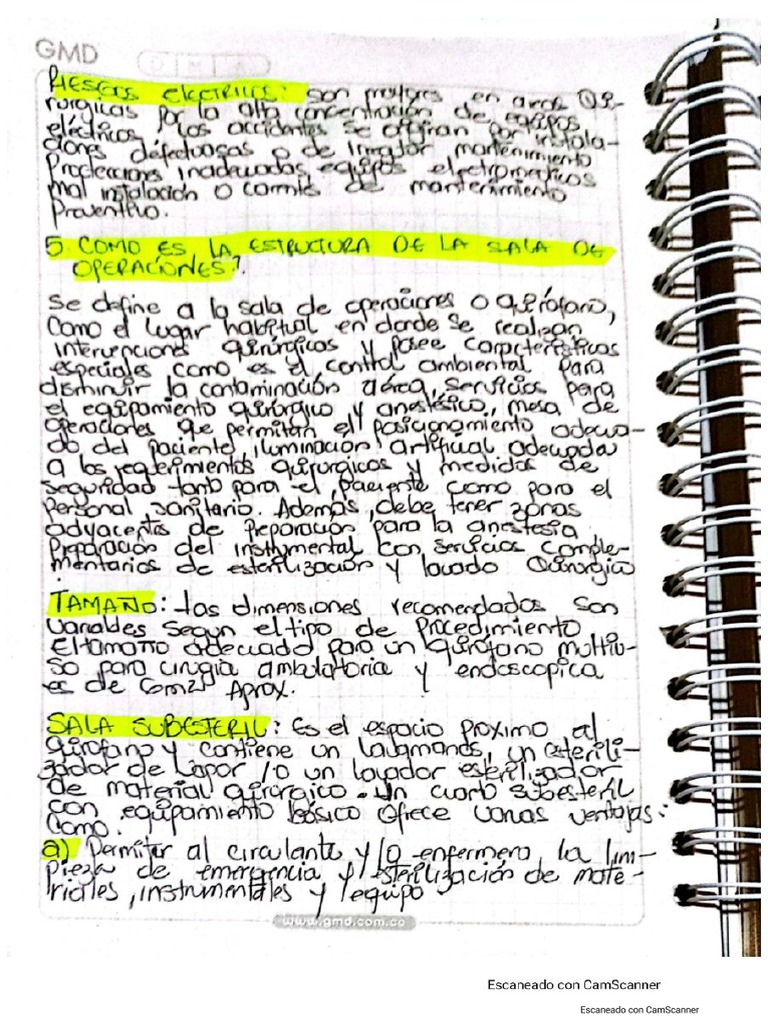 GMD
D I M I A
RIESGOS ELECTRICOS: son mayores en areas Qui-
rurgicas por la alta concentración de equipos
eléctricos, los accidentes se originan por instala-
ciones defectuosas o de irregular mantenimiento
Protecciones inadecuadas, equipos electromedicos
mal instalación o carencias de mantenimiento
Preventivo.
5 COMO ES LA ESTRUCTURA DE LA SALA DE
OPERACIONES?.
Se define a la sala de operaciones o quirófano,
Como el lugar habitual en donde se realizan
intervenciones quirúrgicas y posee características
especiales como es el control ambiental para
disminuir la contaminación aérea, servicios para
el equipamiento quirúrgico y anestésico, mesa de
operaciones que permitan el posicionamiento adecua-
do del paciente iluminación artificial adecuada
a los requerimientos quirurgicos y medidas de
seguridad tanto para el paciente como para el
Personal sanitario. Además, debe tener zonas
adyacentes de Preparación para la anestesia
Preparación del instrumental con servicios comple-
mentarios de esterilización y lavado Quirurgico
TAMAÑO: las dimensiones recomendados son
variables segun el tipo de Procedimiento
El tamaño adecuado para un quirófano multiu-
so para cirugia ambulatoria y endoscopica
es de Aprox.
SALA SUBESTERIL: Es el espacio proximo al
quirofano y contiene un lavamanos, un esterili-
zador de vapor /o un lavador esterilizador
de material quirurgico. un cuarto subesteril
con equipamiento básico ofrece varias ventajas:
Como.
a) Permitir al circulante y/o enfermero la lim-
pieza de emergencia y esterilización de mate-
riales, instrumentales y equipo.
www.gmd.com.co
Escaneado con CamScanner
Escaneado con CamScanner